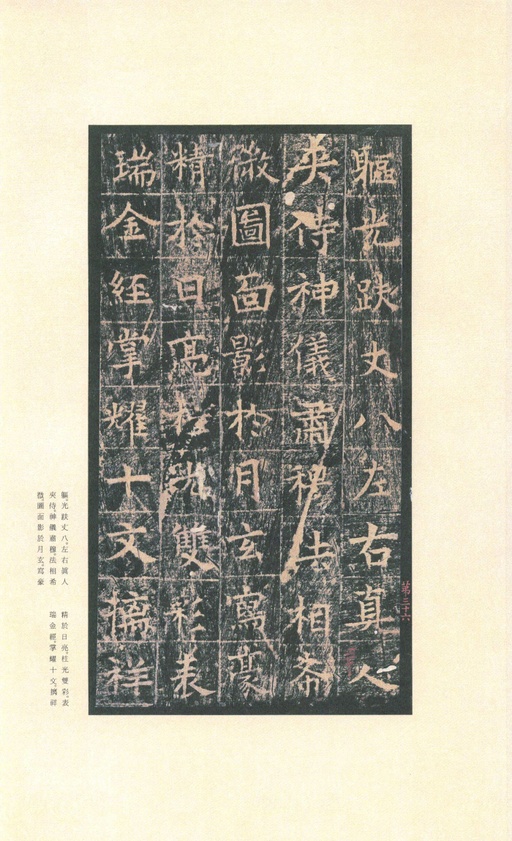 軀光趺丈八左右真人
夾侍神儀肅穆法相希
微圖面影於月玄寫豪
精於日亮柱光雙彩表
瑞金經掌耀十文摛祥
第三十六
軀光趺丈八、左右眞人
夾侍、神儀肅穆、法相希
微、圖面影於月玄、寫豪
精於日亮、柱光雙彩、表
瑞金經、掌耀十文、摛祥